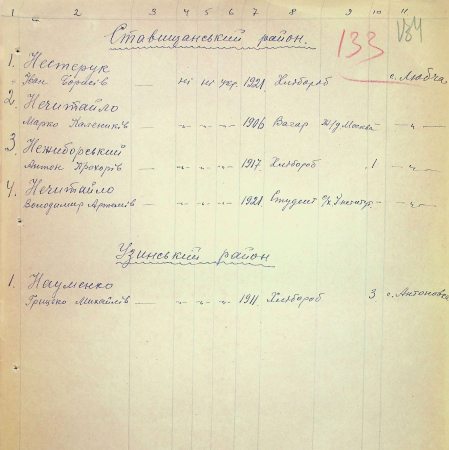 1 2 3 4 5 6 7 8 9 10 11
Ставищанський район.
133
1. Нестерук
Іван Борисів — ні ні укр. 1921 Хлібороб с. Любча
2. Нечитайло
Марко Калеників — -"- -"- -"- 1906 Вагар Москва — -"- —
3 Нежиборський
Антон Прохорів — -"- -"- -"- 1917 Хлібороб 1 — -"- —
4. Нечитайло
Володимир Артемів — -"- -"- -"- 1921 Студент — -"- —
Узинський район
1. Науменко
Грицько Михайлів — -"- -"- -"- 1911 Хлібороб 3 с. Антонівка